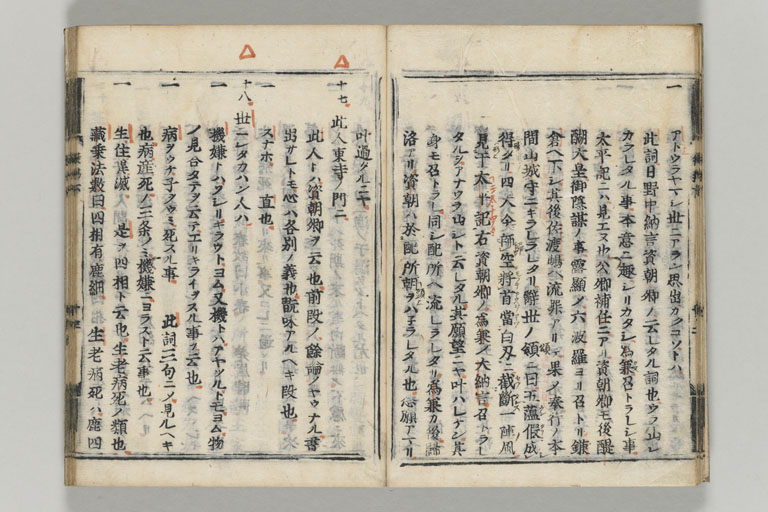 一 アナウラヤマシ世ニアラン思出カクコソトハ
此詞日野中納言資朝卿ノ云レタル詞也ウラ山シ
カラレタル事本意ニ趣シリカタシ為兼召トラレシ事
太平記ニハ見エス也公卿補任ニアリ資朝卿モ後醍
醐天皇御隠謀ノ事露顕ノ六波羅ヨリ召トリ鎌
倉ヘ下シ其後佐渡嶋ヘ流罪アリ其果ノ奉行ノ本
間山城守ニキラレラレタリ辞世ノ頌ニ曰五蘊仮成
得タリ四大今帰空将首当白刃ニ截断一陣風
見于太平記右資朝卿ノ為兼ノ大納言召トラレ
タルヲアナウラ山シト云レタル其願望ニヤ叶ハレケン其
身モ召トラレ同シ配所ヘ流シラレタリ為兼ハ後帰
洛アリ資朝ハ於配所朝ヲハネラレタル也悪願アマリ
叶過タルニヤ
十七 此人東寺ノ門ニ
此人トハ資朝卿ヲ云也前段ノ餘論ノヤウナル書
出サレトモ心ハ各別ノ義也翫味アルヘキ段也
一 スナホ 直也
十八 世ニシタカハン人ハ
一 機嫌トハソシリキラウトヨム又機トハアヤツルトモヨム物
ノ見合タテヲ云テエリキライヲスル事ヲ云也
一 病ヲウケ子ウミ死スル事 此詞三句ニノ見ルヘキ
也病産死ノ三条ノミ機嫌ニヨラスト云事也
一 生住異滅 是ヲ四相ト云也生老病死ノ類也
蔵乗法数曰四相有麁細 生老病死ハ麁四